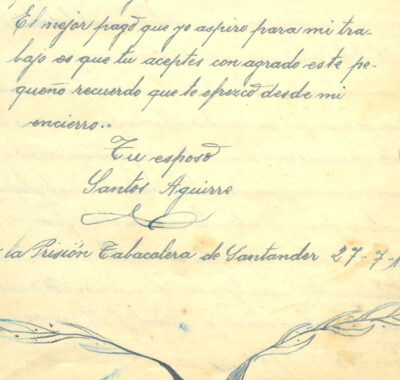 El mejor pago que yo aspiro para mi tra-
bajo es que tu aceptes con agrado este pe-
queño recuerdo que te ofrezco desde mi
encierro..
Tu esposo
Santos Aguirre
la Prisión Tabacalera de Santander 27-7-